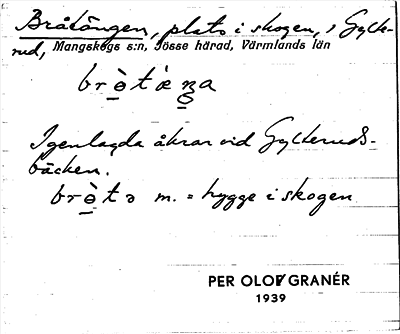 Bråtängen, plats i skogen, i Gylte-
rud, Mangskogs s:n, Jösse härad, Värmlands län
brɵ̀tæŋa
Igenlagda åkrar vid Gylteruds-
bäcken.
brɵ̀tə m. = hygge i skogen
PER OLOF GRANÉR
1939